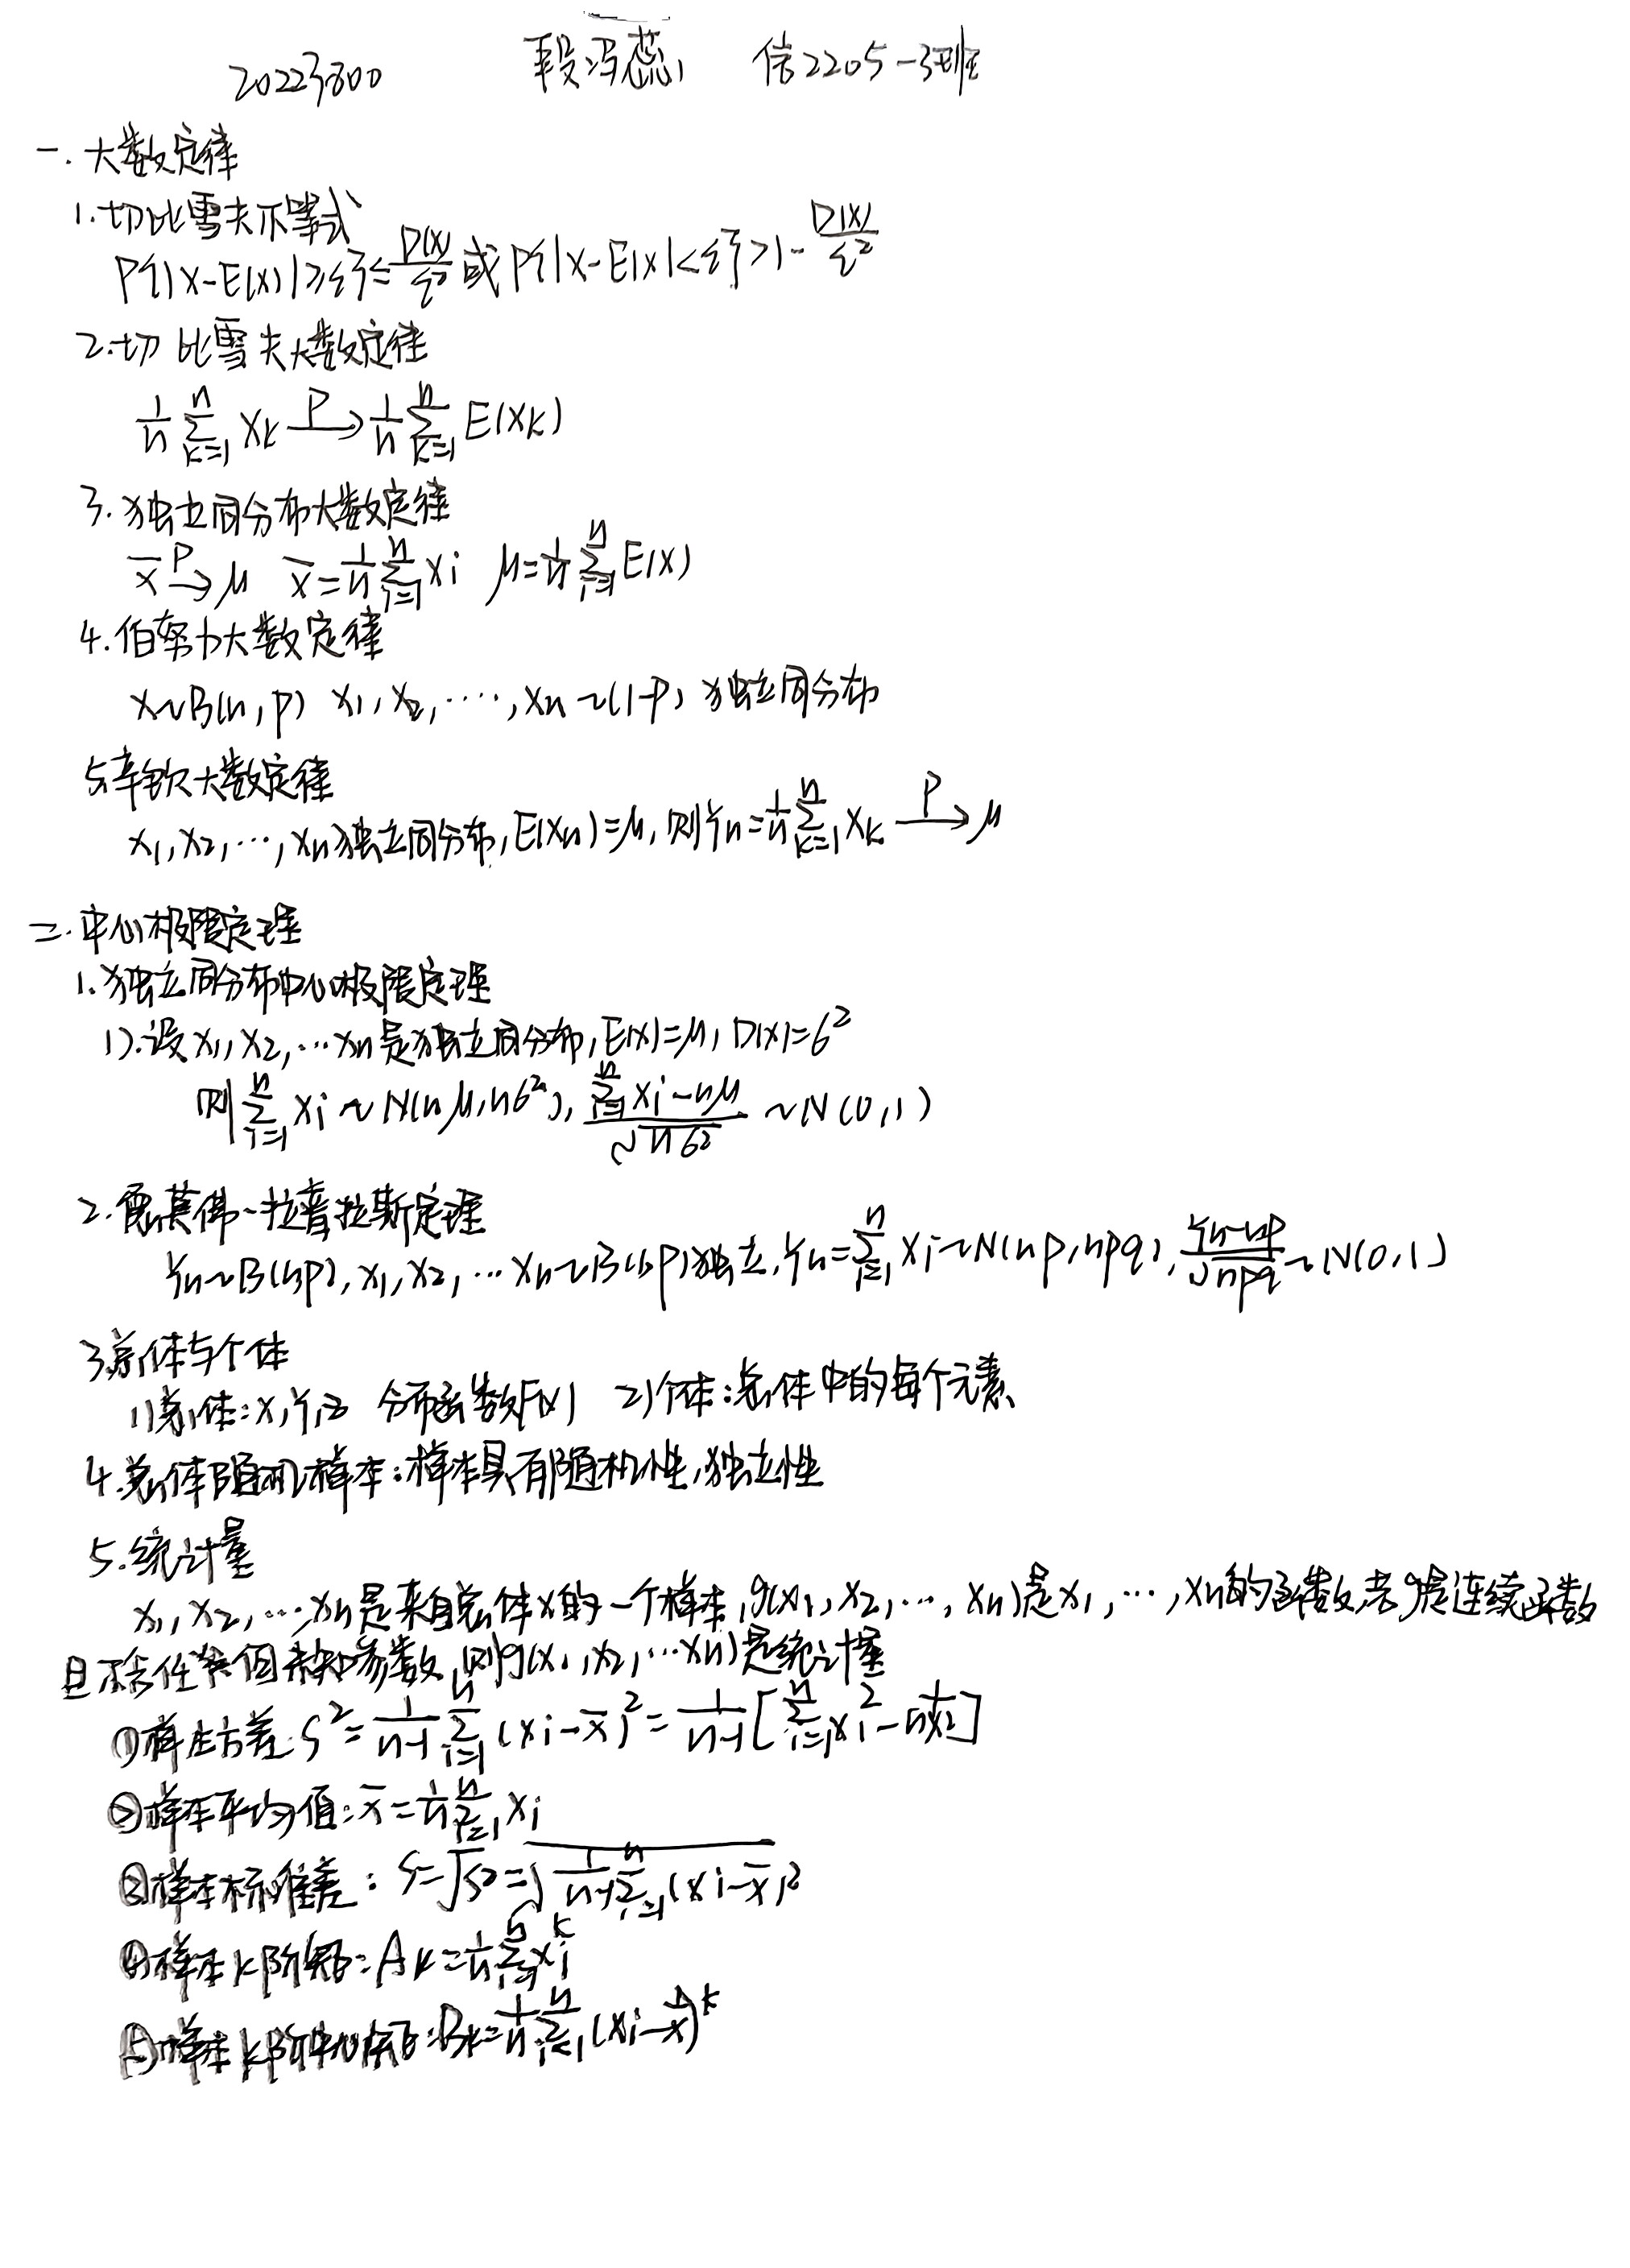 段冯蕊 信2205-3班
一. 大数定律
1.切比雪夫不等式
P{|X-E(X)|≥ε}≤D(X)/ε² 或 P{|X-E(X|<ε}>1-D(X)/ε²
2.切比雪夫大数定律
1/n ∑(k=1→n) Xk —P→ 1/n ∑(k=1→n) E(Xk)
3.独立同分布大数定律
x̄ —P→ μ x̄=1/n ∑(i=1→n) xi μ=1/n ∑(i=1→n) E(X)
4.伯努力大数定律
X~B(n,p) X1,X2,····,Xn~(1-p) 独立同分布
5.辛钦大数定律
X1,X2,···,Xn独立同分布,E(Xn)=μ,则Yn=1/n ∑(k=1→n) Xk —P→ μ
二.中心极限定理
1.独立同分布中心极限定理
1).设X1,X2,···Xn是独立同分布,E(X)=μ,D(X)=6²
则∑(i=1→n) Xi~N(nμ,n6²), (∑(i=1→n) Xi-nμ)/√(n6²) ~N(0,1)
2.棣莫佛-拉普拉斯定理
Yn~B(n,p),X1,X2,···Xn~B(1,p)独立,Yn=∑(i=1→n) Xi~N(np,npq),(Yn-np)/√(npq) ~N(0,1)
3.总体与个体
1)总体:X,Y,Z 分布函数F(X) 2)个体:总体中的每个元素
4.总体随机样本:样本具有随机性,独立性
5.统计量
X1,X2,···,Xn是来自总体X的一个样本,g(X1,X2,···,Xn)是X1,···,Xn的函数,若g是连续函数
且不含任何未知参数,则g(X1,X2,···Xn)是统计量
①样本方差:S²=1/(n-1) ∑(i=1→n) (Xi-x̄)²=1/(n-1)[∑(i=1→n) Xi²-
②样本平均值:x̄=1/n ∑(i=1→n) Xi
③样本标准差:S=√S²=√(1/(n-1) ∑(i=1→n) (Xi-x̄)²)
④样本k阶矩:Ak=1/n ∑(i=1→n) Xi^k
⑤样本k阶中心矩:Bk=1/n ∑(i=1→n) (Xi-x̄)^k